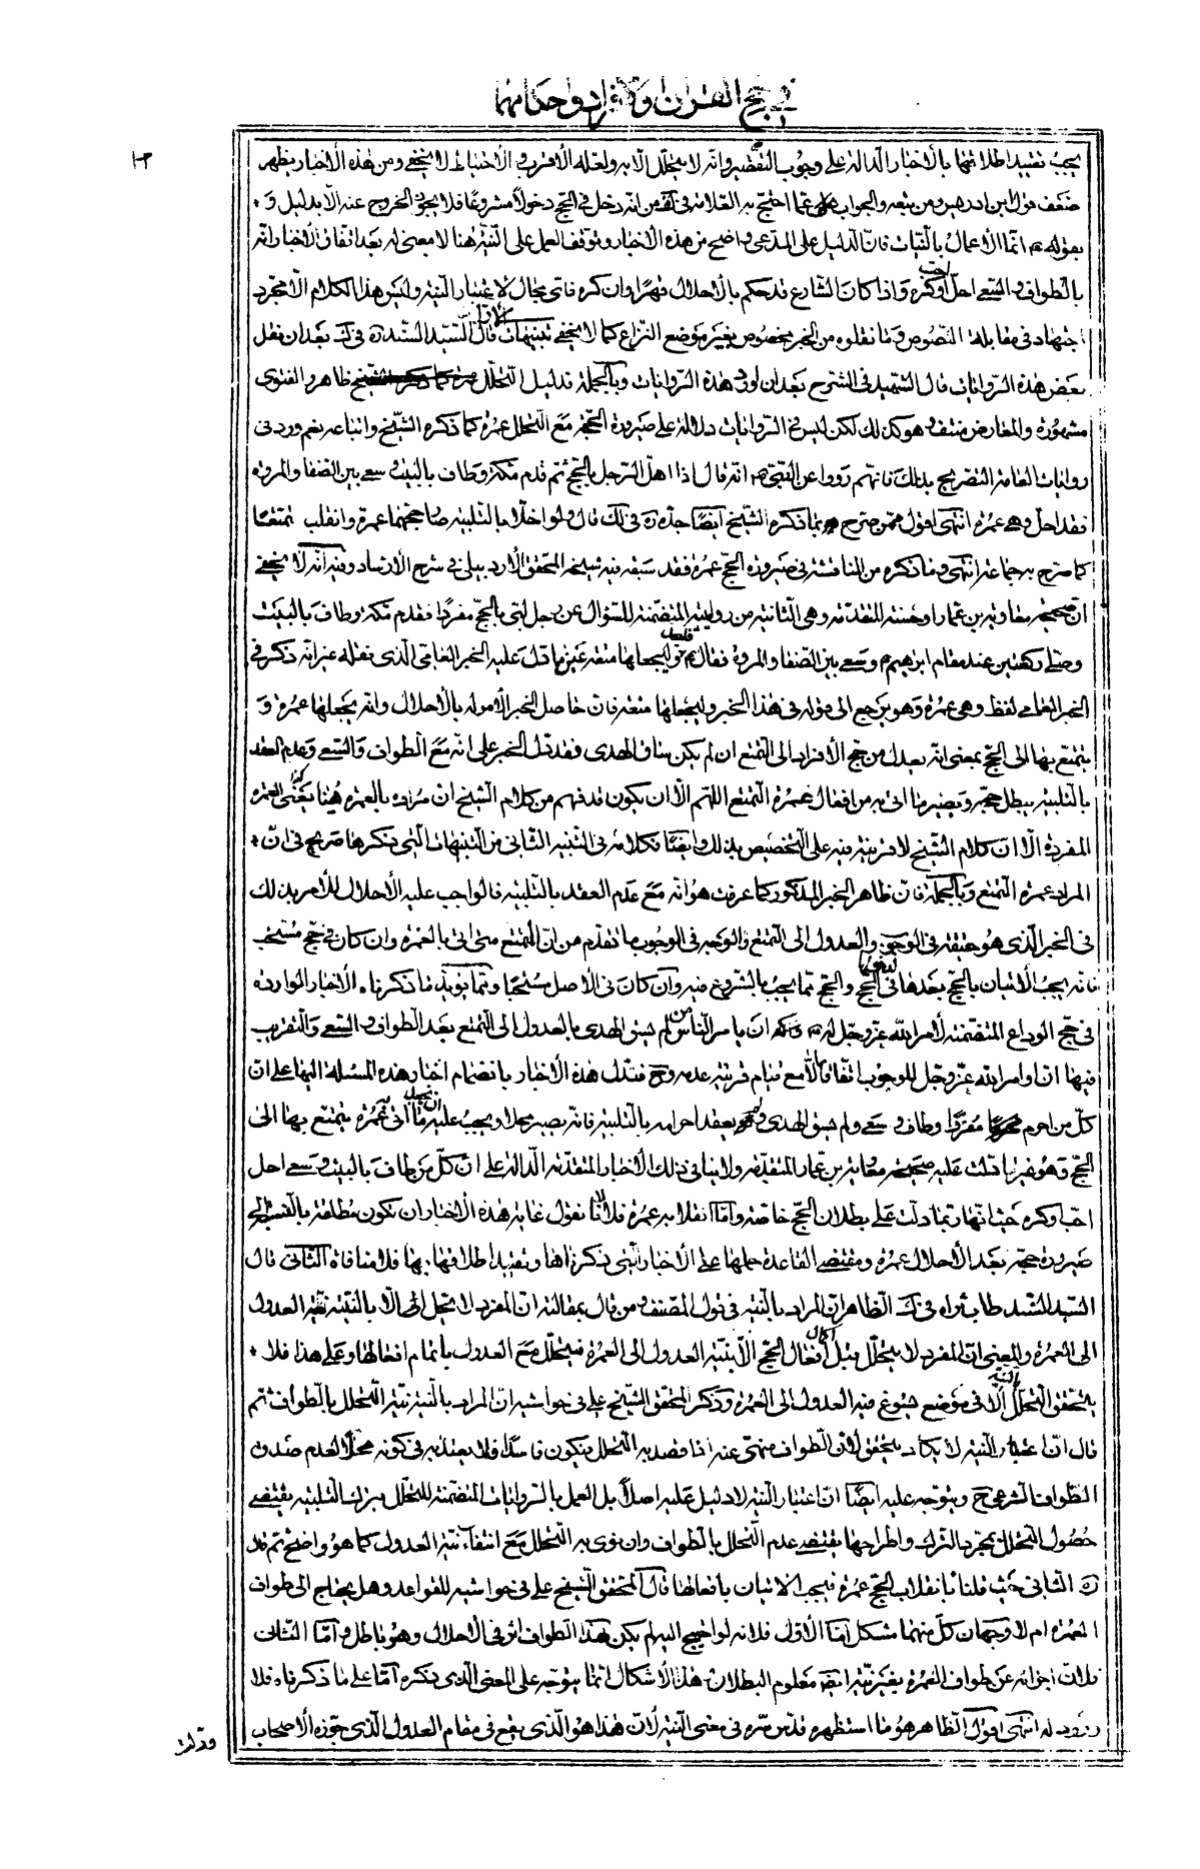 في حج القران والافراد واحكامهما
يجب تقييد اطلاقها بالاخبار الدالة على وجوب التقصير وانه لا يتحلل الا به ولعله الاقرب والاحتياط لا يخفى ومن هذه الاخبار يظهر
ضعف قول ابن ادريس ومن تبعه والجواب عما احتج به العلامة في من انه دخل في الحج دخولا مشروعا فلا يجوز الخروج عنه الا بدليل و
بقوله ص انما الاعمال بالنيات فان الدليل على المدعى واضح من هذه الاخبار وتوقف العمل على النية هنا لا معنى له بعد اتفاق الاخبار انه
بالطواف والسعي احل احب او كره واذا كان الشارع قد حكم بالاحلال قهرا وان كره فاتى مجال لاعتبار النية وليس هذا الكلام الا مجرد
اجتهاد في مقابلة النصوص وما نقلوه من الخبر مخصوص بغير موضع النزاع كما لا يخفى تنبيهات الاول قال السيد السند ره في ك بعد ان نقل
بعض هذه الروايات قال الشهيد في الشرح بعد ان اورد هذه الروايات وبالجملة فدليل التحلل ظاهر والفتوى
مشهورة والمعارض منتف وهو كذلك لكن ليس في الروايات دلالة على صيرورة الحجة مع التحلل عمرة كما ذكره الشيخ واتباعه نعم ورد في
روايات العامة التصريح بذلك فانهم رووا عن النبي ص انه قال اذا اهل الرجل بالحج ثم قدم مكة وطاف بالبيت وسعى بين الصفا والمروة
فقد احل وهي عمرة انتهى اقول ممن صرح بما ذكره الشيخ ايضا جده ره في لك قال ولو اخلا بالتلبية صار حجهما عمرة وانقلب تمتعا
كما صرح به جماعة انتهى وما ذكره من المناقشة في صيرورة الحج عمرة فقد سبقه فيه شيخه المحقق الاردبيلي في شرح الارشاد وفيه انه لا يخفى
ان صحيحة معاوية بن عمار او حسنته المتقدمة وهي الثانية من روايتيه المتضمنة للسؤال عن رجل لبى بالحج مفردا فقدم مكة وطاف بالبيت
وصلى ركعتين عند مقام ابراهيم ع وسعى بين الصفا والمروة فقال ع فليحل وليجعلها متعة عين ما دل عليه الخبر العامي الذي نقله غير انه ذكر في
الخبر العامي لفظ وهي عمرة وهو يرجع الى قوله في هذا الخبر وليجعلها متعة فان حاصل الخبر الامر له بالاحلال وانه يجعلها عمرة و
يتمتع بها الى الحج بمعنى انه يعدل من حج الافراد الى التمتع ان لم يكن ساق الهدى فقد دل الخبر على انه مع الطواف والسعي وعدم العقد
بالتلبية يبطل حجه ويصير ما اتى به من افعال عمرة التمتع اللهم الا ان يكون قد فهم من كلام الشيخ ان مراده بالعمرة هنا يعني العمرة
المفردة الا ان كلام الشيخ لا قرينة فيه على التخصيص بذلك وايضا فكلامه في التنبيه الثاني من التنبيهات التي ذكرها صريح في ان
المراد عمرة التمتع وبالجملة فان ظاهر الخبر المذكور كما عرفت هو انه مع عدم العقد بالتلبية فالواجب عليه الاحلال للامر بذلك
في الخبر الذي هو حقيقة في الوجوب والعدول الى التمتع والوجه في الوجوب ما تقدم من ان المتمتع متى اتى بالعمرة وان كان في حج مستحب
فانه يجب الاتيان بالحج بعدها لدخولها في الحج والحج مما يجب بالشروع فيه وان كان في الاصل مستحبا ومما يؤيد ما ذكرناه الاخبار الواردة
في حج الوداع المتضمنة لامر الله عز وجل له ص ان يامر الناس ممن لم يسق الهدى بالعدول الى التمتع بعد الطواف والسعي والتقريب
فيها ان اوامر الله عز وجل للوجوب اتفاقا الا مع قيام قرينة عدمه وح فتدل هذه الاخبار بانضمام اخبار هذه المسئلة اليها على ان
كل من احرم مفردا وطاف وسعى ولم يسق الهدى ولم يعقد احرامه بالتلبية فانه يصير محلا ويجب عليه ان يجعل ما اتى به عمرة يتمتع بها الى
الحج وهو عين ما دلت عليه صحيحة معاوية بن عمار المتقدمة ولا ينافي ذلك الاخبار المتقدمة الدالة على ان كل من طاف بالبيت وسعى احل
احب او كره حيث انها ربما دلت على بطلان الحج خاصة واما انقلابه عمرة فلا لانا نقول غاية هذه الاخبار ان تكون مطلقة بالنسبة الى
صيرورة حجه بعد الاحلال عمرة ومقتضى القاعدة حملها على الاخبار التي ذكرناها وتقييد اطلاقها بها فلا منافاة الثاني قال
السيد السند طاب ثراه في ك الظاهر ان المراد بالنية في قول المصنف ومن قال بمقالته ان المفرد لا يحل الا بالنية نية العدول
الى العمرة والمعنى ان المفرد لا يتحلل قبل اكمال افعال الحج الا بنية العدول الى العمرة فيتحلل مع العدول باتمام افعالها وعلى هذا فلا
يتحقق التحلل بالنية الا في موضع يسوغ فيه العدول الى العمرة وذكر المحقق الشيخ علي في حواشيه ان المراد بالنية نية التحلل بالطواف ثم
قال ان اعتبار النية لا يكاد يتحقق لان الطواف منهي عنه اذا قصد به التحلل فيكون فاسدا فلا يعتد به في كونه محللا لعدم صدق
الطواف الشرعي ح ويتوجه عليه ايضا ان اعتبار النية لا دليل عليه اصلا بل العمل بالروايات المتضمنة للتحلل بترك التلبية يقتضي
حصول التحلل بمجرد الترك واطراحها يقتضي عدم التحلل بالطواف وان نوى به التحلل مع انتفاء نية العدول كما هو واضح ثم قد
الثاني حيث قلنا بانقلاب الحج عمرة فيجب الاتيان بافعالها قال المحقق الشيخ علي في حواشيه للقواعد وهل يحتاج الى طواف
العمرة ام لا وجهان كل منهما مشكل اما الاول فلانه لو احتيج اليه لم يكن لهذا الطواف اثر في الاحلال وهو باطل واما الثاني
فلان اجزائه عن طواف العمرة بغير نية ايضا معلوم البطلان هذا الاشكال انما يتوجه على المعنى الذي ذكره اما على ما ذكرناه فلا
ورود له انتهى اقول الظاهر هو ما استظهره قدس سره في معنى النية لان هذا هو الذي يقع في مقام العدول الذي جوزه الاصحاب